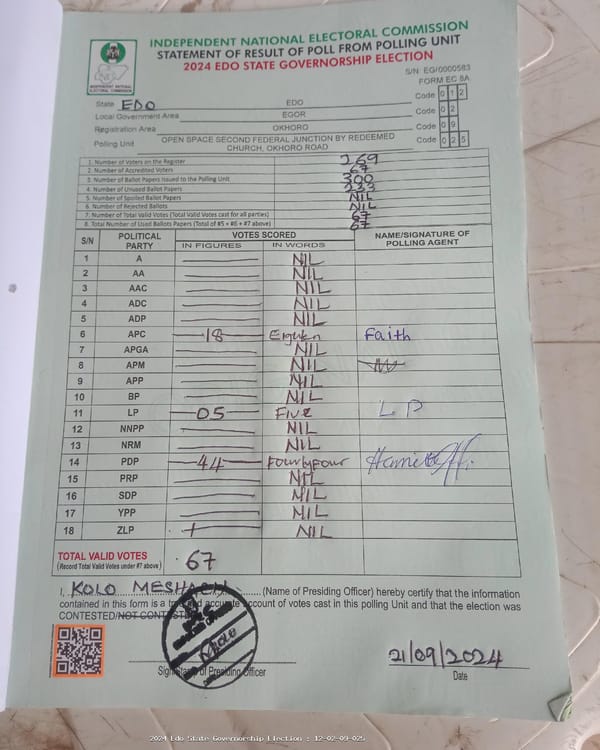 INDEPENDENT NATIONAL ELECTORAL COMMISSION
STATEMENT OF RESULT OF POLL FROM POLLING UNIT
2024 EDO STATE GOVERNORSHIP ELECTION
S/N: EG/0000583
FORM EC 8A
INDEPENDENT NATIONAL ELECTORAL COMMISSION
State EDO EDO Code 0 1 2
Local Government Area EGOR Code 0 2
Registration Area OKHORO Code 0 9
Polling Unit OPEN SPACE SECOND FEDERAL JUNCTION BY REDEEMED CHURCH, OKHORO ROAD Code 0 2 5
1. Number of Voters on the Register 269
2. Number of Accredited Voters 67
3. Number of Ballot Papers Issued to the Polling Unit 300
4. Number of Unused Ballot Papers 233
5. Number of Spoiled Ballot Papers NIL
6. Number of Rejected Ballots NIL
7. Number of Total Valid Votes (Total Valid Votes cast for all parties) 67
8. Total Number of Used Ballots Papers (Total of #5 + #6 + #7 above) 67
S/N POLITICAL PARTY VOTES SCORED NAME/SIGNATURE OF POLLING AGENT
IN FIGURES IN WORDS
1 A NIL
2 AA NIL
3 AAC NIL
4 ADC NIL
5 ADP NIL
6 APC 18 Faith
7 APGA NIL
8 APM NIL
9 APP NIL
10 BP NIL
11 LP 05 Five LP
12 NNPP NIL
13 NRM NIL
14 PDP 44 FourtyFour
15 PRP NIL
16 SDP NIL
17 YPP NIL
18 ZLP NIL
TOTAL VALID VOTES 67
(Record Total Valid Votes under #7 above)
I, KOLO MESHACH (Name of Presiding Officer) hereby certify that the information
contained in this form is a true and accurate account of votes cast in this polling Unit and that the election was
CONTESTED/NOT CONTESTED
21/09/2024
Signature of Presiding Officer Date
2024 Edo State Governorship Election : 12-02-09-025